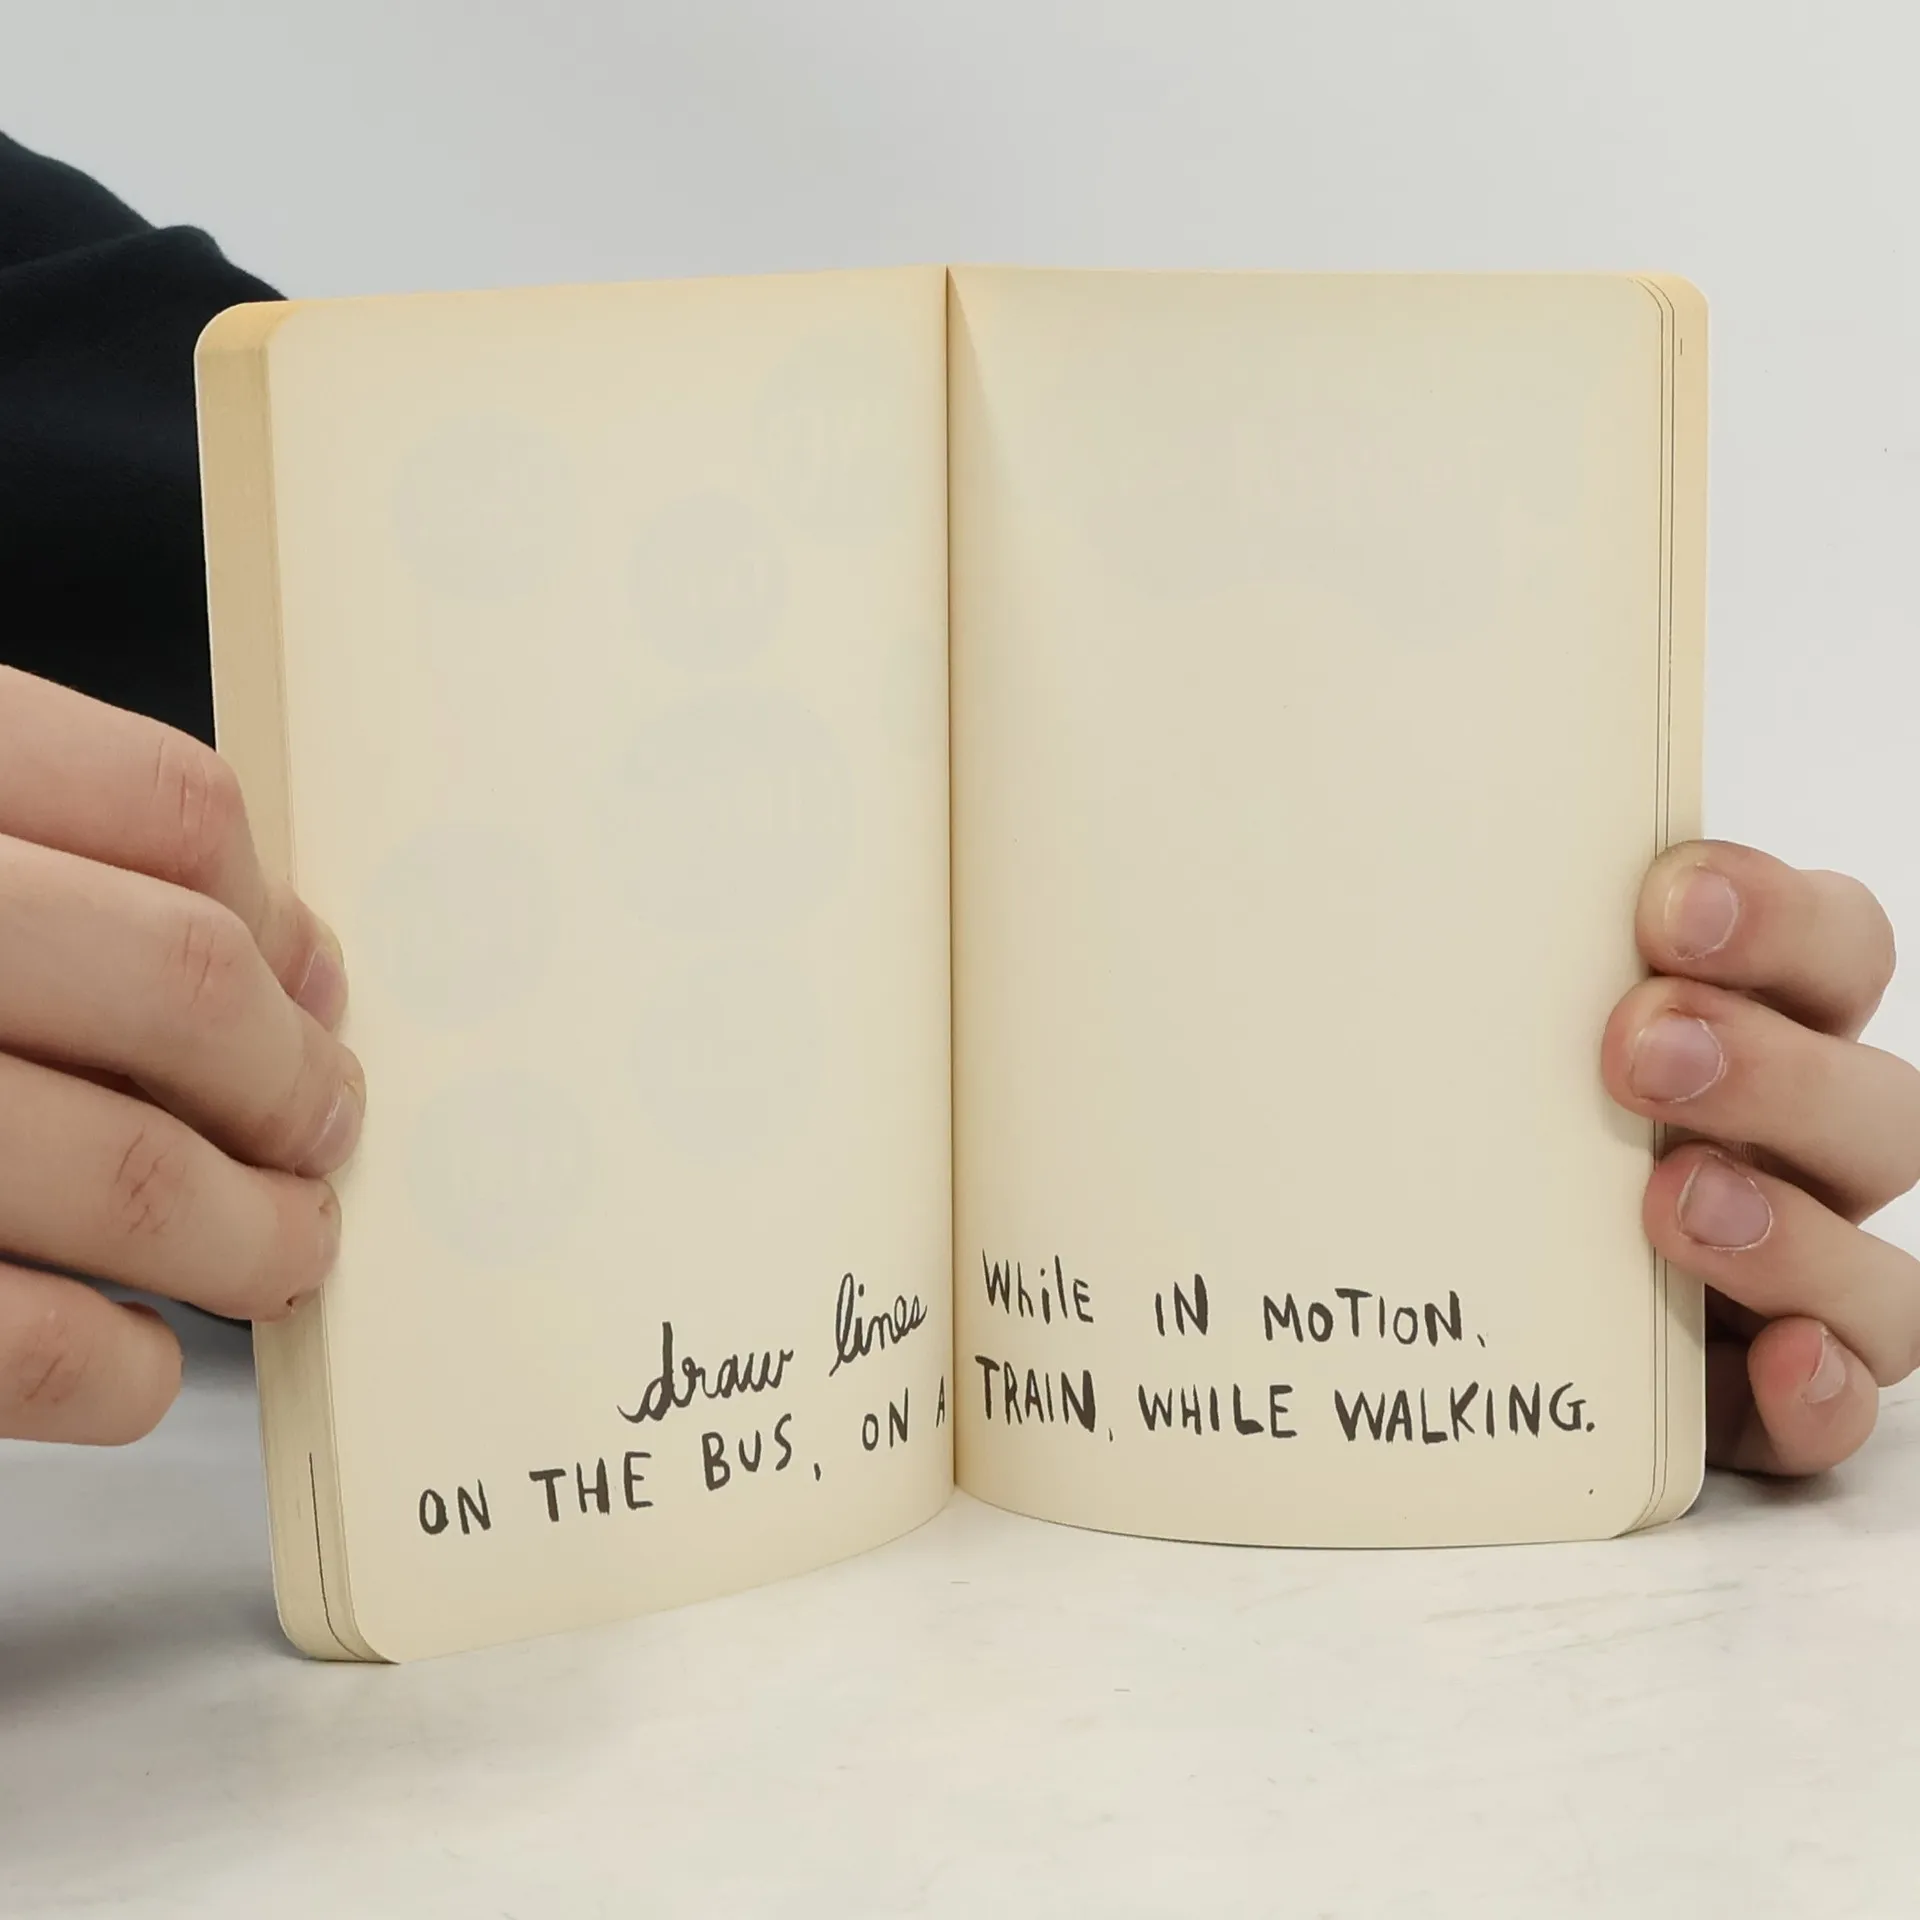 draw lines While IN MOTION.
ON THE BUS, ON A TRAIN, WHILE WALKING.